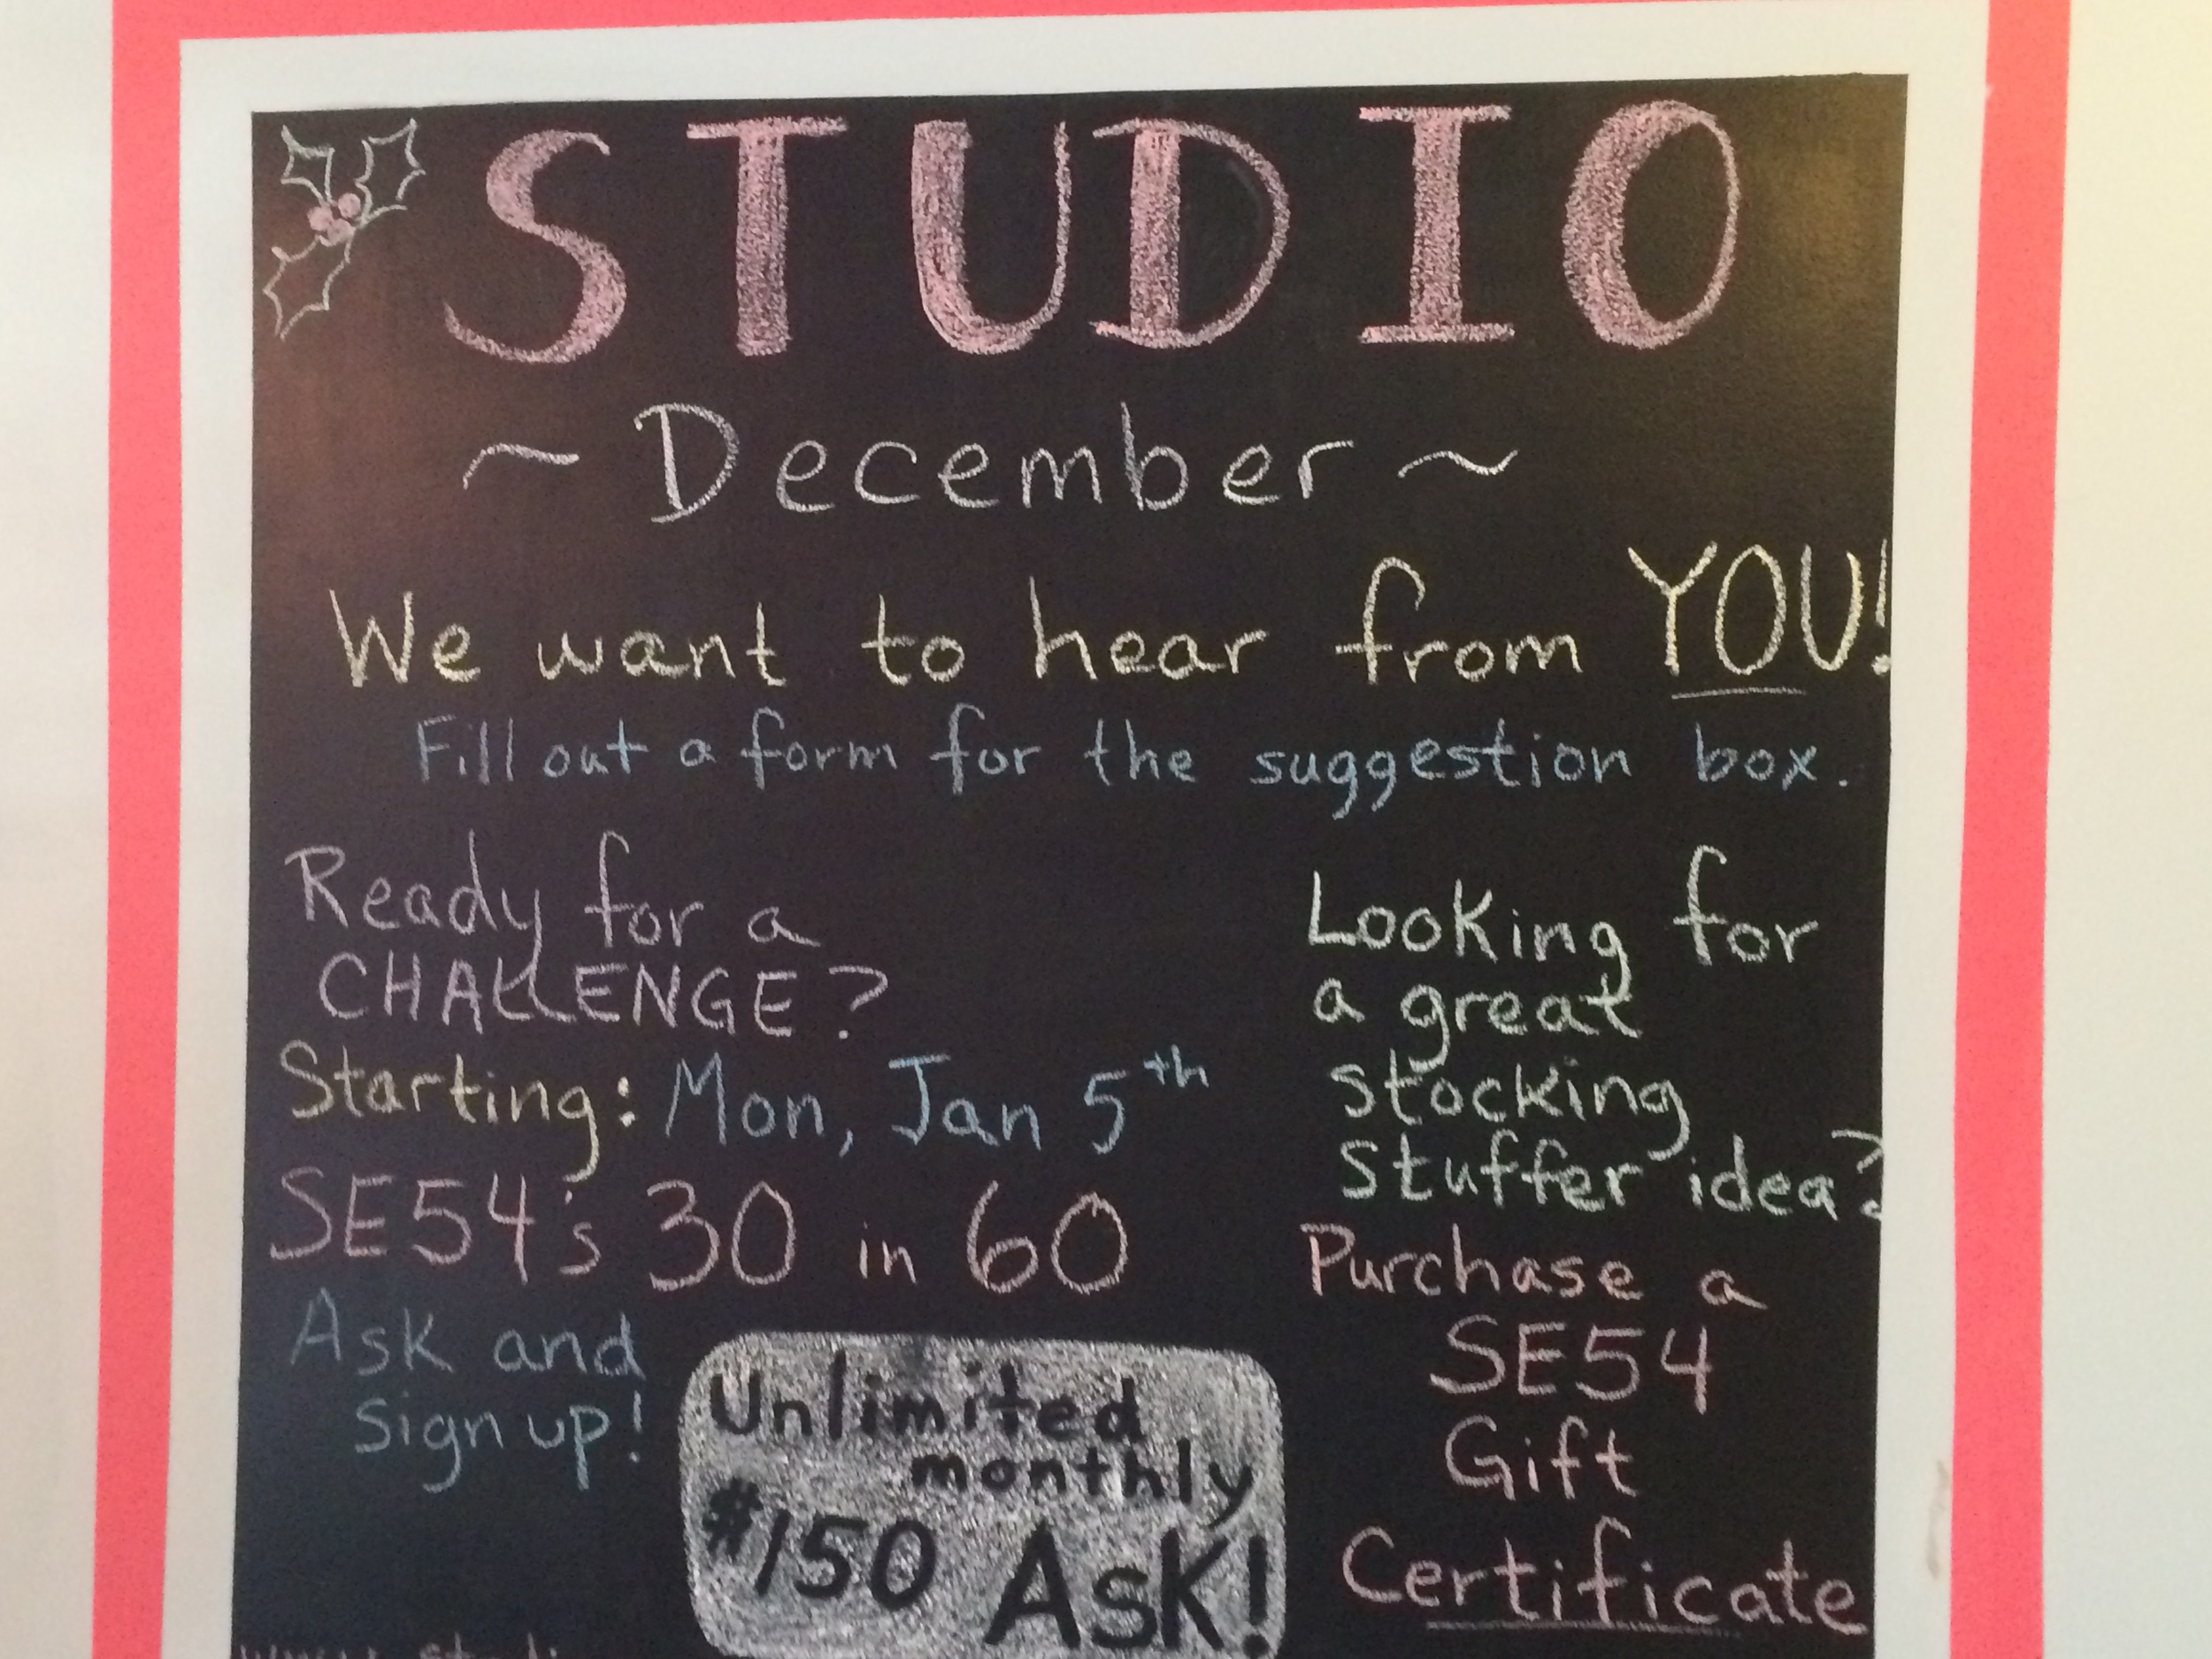 STUDIO
~ December ~
We want to hear from YOU!
Fill out a form for the suggestion box.
Ready for a
CHALLENGE?
Starting: Mon, Jan 5th
SE54's 30 in 60
Ask and
sign up!
Unlimited
monthly
$150 Ask!
Looking for
a great
stocking
stuffer idea?
Purchase a
SE54
Gift
Certificate